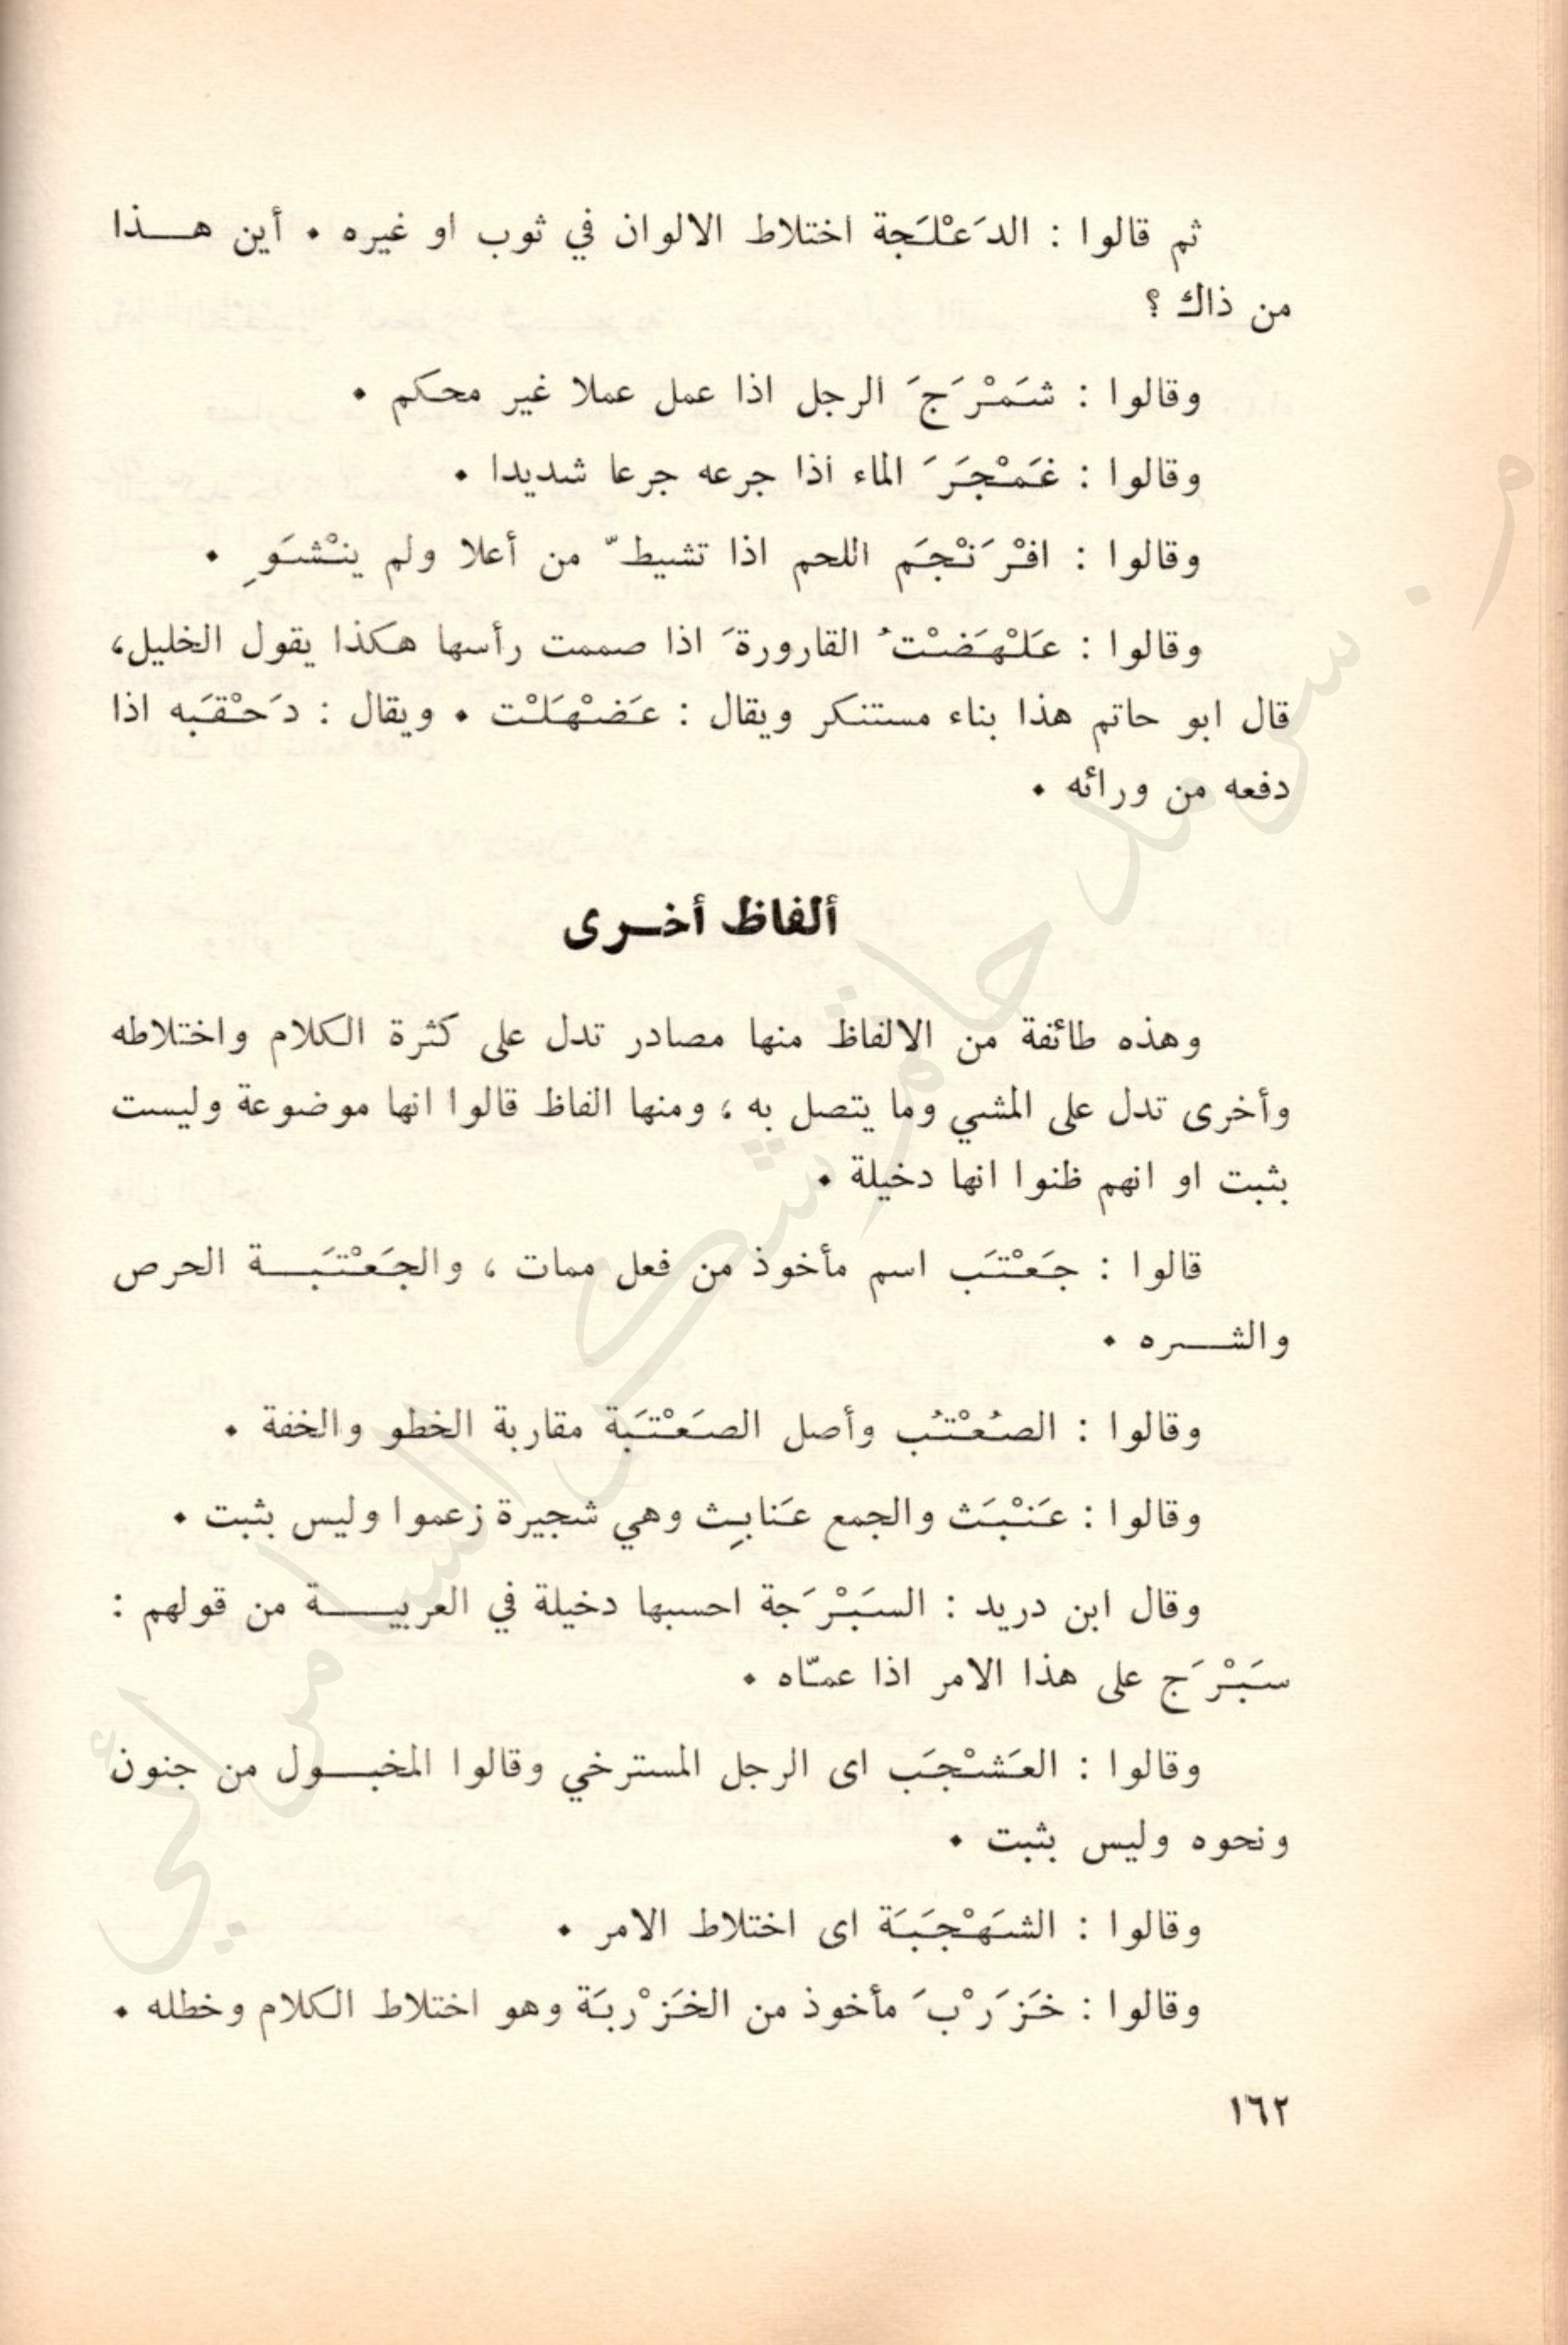 ثم قالوا : الدَعْلَجة اختلاط الالوان في ثوب او غيره . أين هذا
من ذاك ؟
وقالوا : شَمْرَجَ الرجل اذا عمل عملا غير محكم .
وقالوا : غَمْجَرَ الماء اذا جرعه جرعا شديدا .
وقالوا : افْرَنْجَم اللحم اذا تشيطّ من أعلا ولم ينْشَوِ .
وقالوا : عَلْهَضْتُ القارورةَ اذا صممت رأسها هكذا يقول الخليل،
قال ابو حاتم هذا بناء مستنكر ويقال : عَضْهَلْت . ويقال : دَحْقَبه اذا
دفعه من ورائه .
ألفاظ أخرى
وهذه طائفة من الالفاظ منها مصادر تدل على كثرة الكلام واختلاطه
وأخرى تدل على المشي وما يتصل به ؛ ومنها الفاظ قالوا انها موضوعة وليست
بثبت او انهم ظنوا انها دخيلة .
قالوا : جَعْتَب اسم مأخوذ من فعل ممات ، والجَعْتَبة الحرص
والشره .
وقالوا : الصُعْتُب وأصل الصَعْتَبة مقاربة الخطو والخفة .
وقالوا : عَنْبَث والجمع عَنابِث وهي شجيرة زعموا وليس بثبت .
وقال ابن دريد : السَبْرَجة احسبها دخيلة في العربية من قولهم :
سَبْرَج على هذا الامر اذا عمّاه .
وقالوا : العَشْجَب اى الرجل المسترخي وقالوا المخبول من جنون
ونحوه وليس بثبت .
وقالوا : الشَهْجَبَة اى اختلاط الامر .
وقالوا : خَزَرْبَ مأخوذ من الخَزْربَة وهو اختلاط الكلام وخطله .
١٦٢